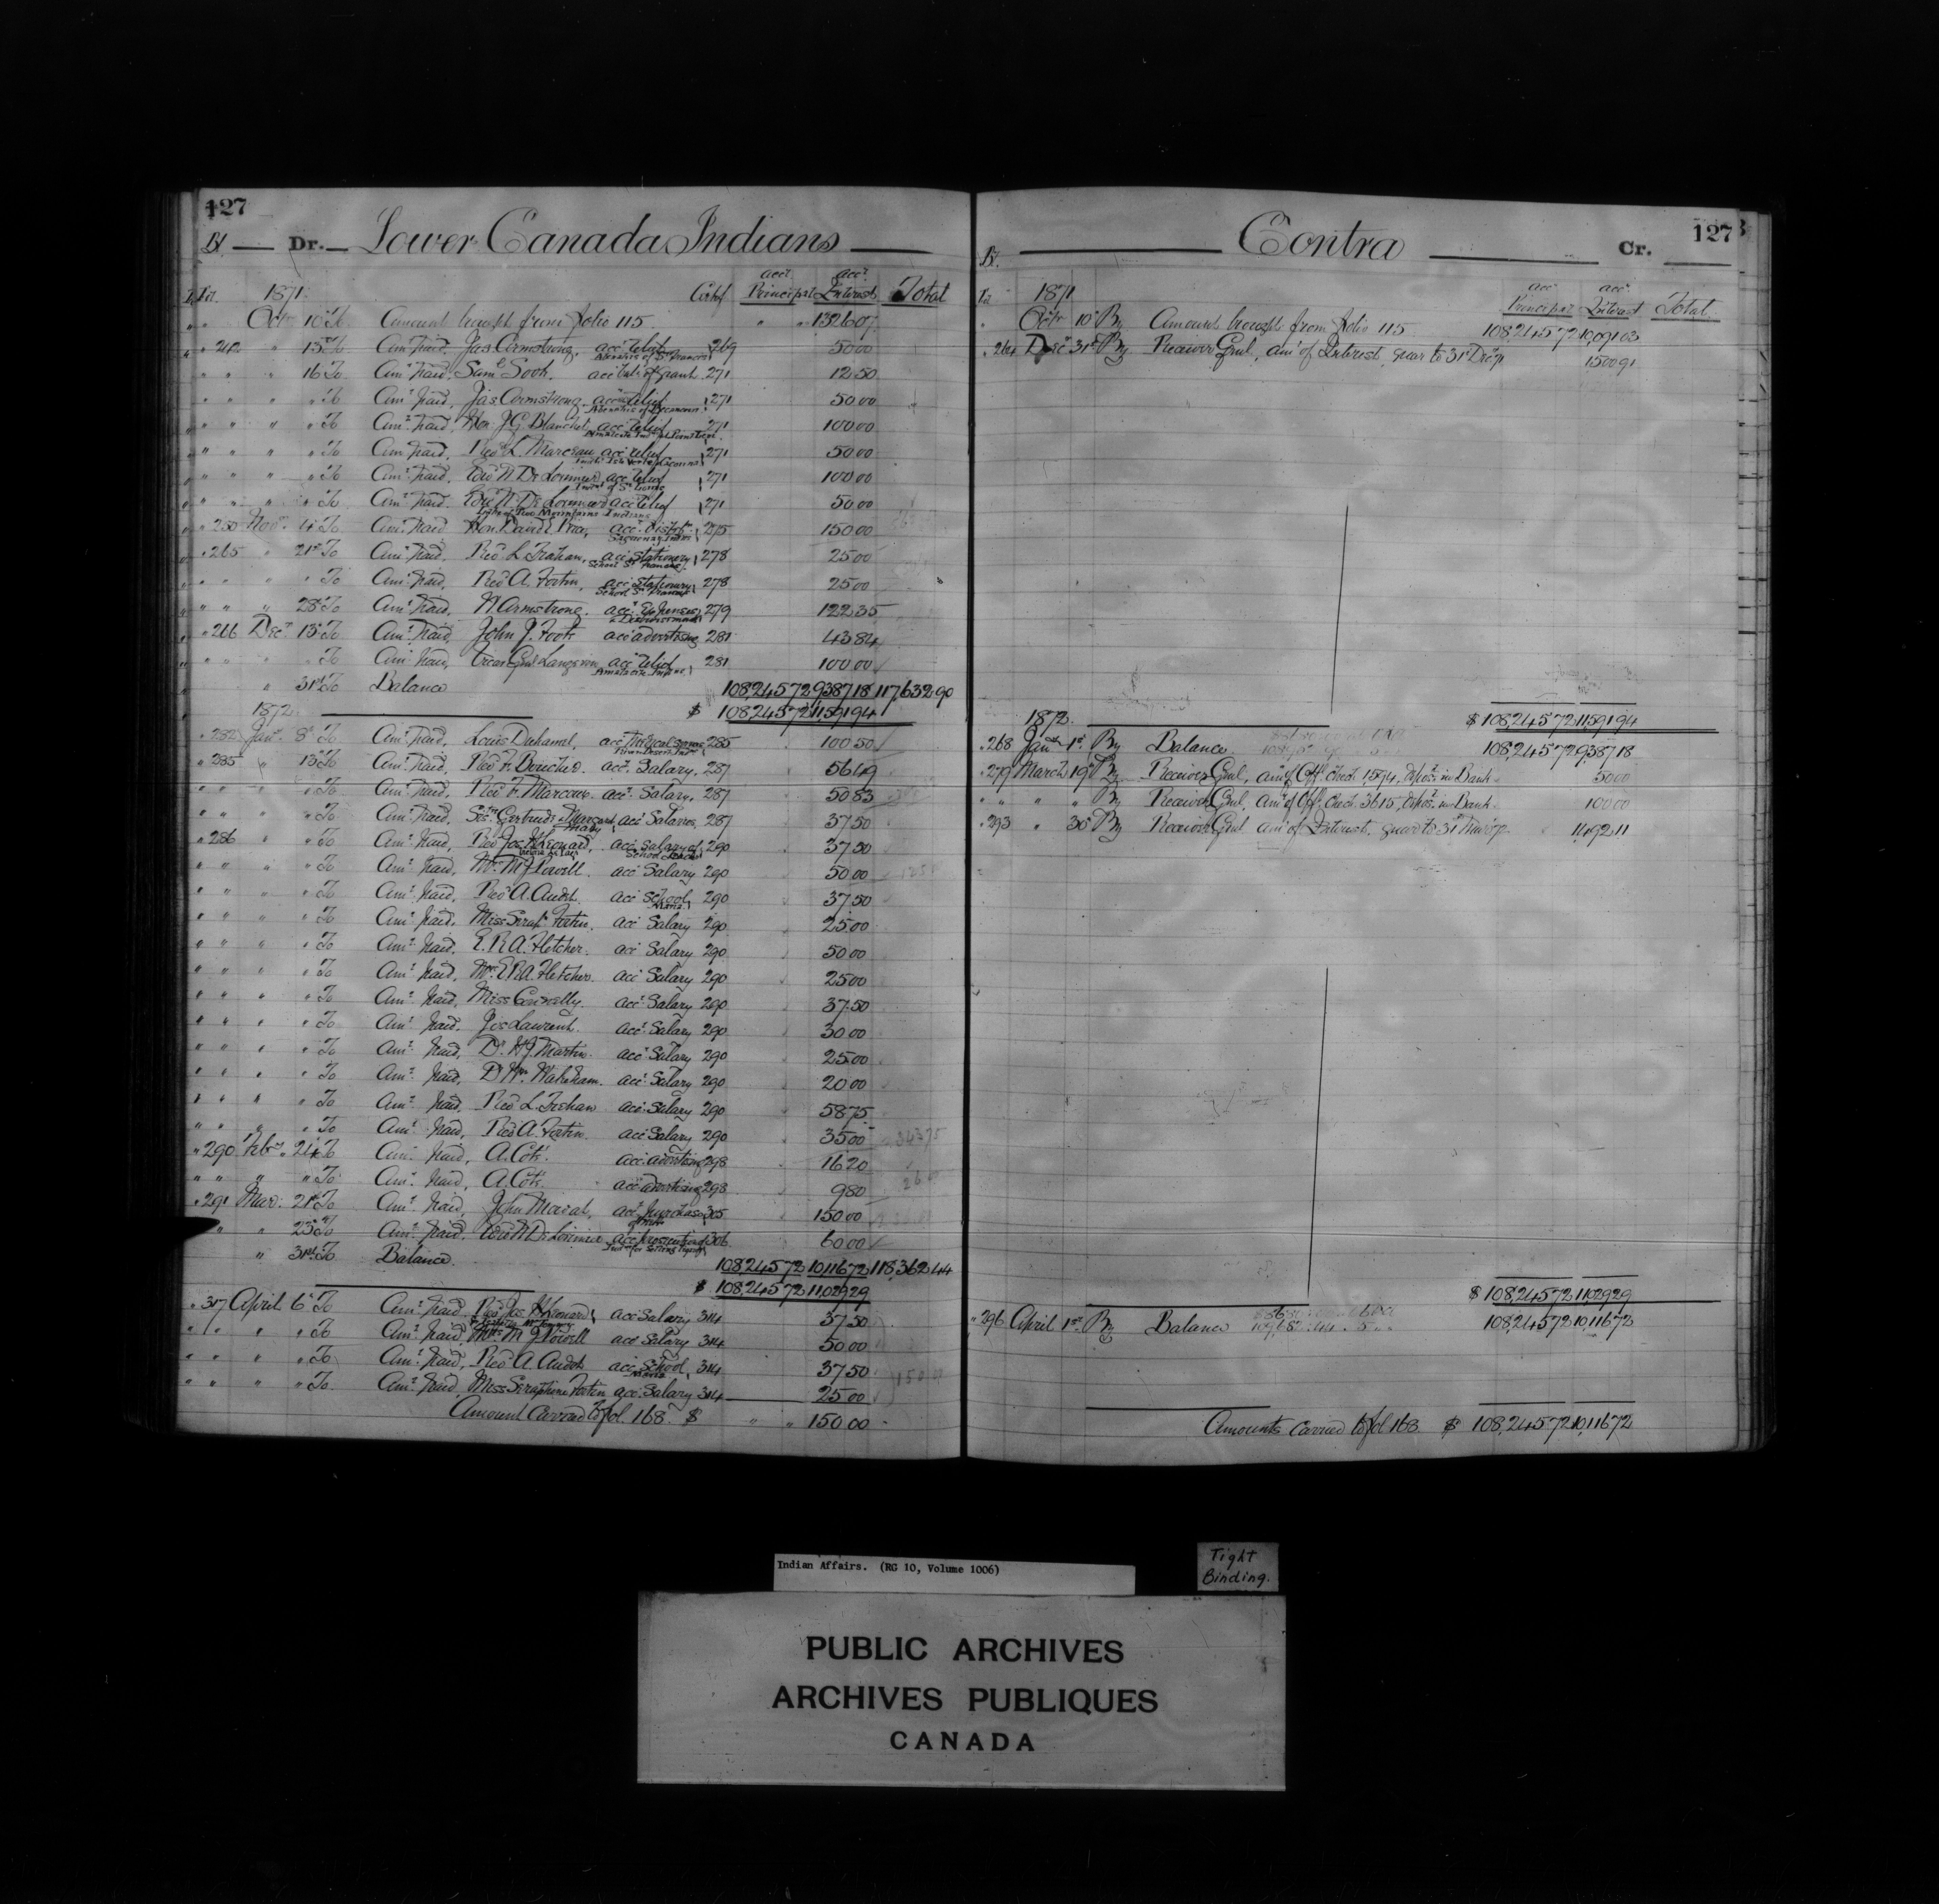 127
Dr. Lower Canada Indians
1871 Certif. acct Principal acct Interest Total
" " Octr 10 To Amount brought from folio 115 " " 1326 07
" 242 " 13 To Amt paid, Jas Armstrong, acct relief 269 50 00
Abenakis of St Francis
" " " 16 To Amt paid, Saml 271 12 50
" " " " To Amt paid, Jas Armstrong acct relief 271 50 00
Abenakis of Becancour
" " " " To Amt paid, Hon. J G Blanchet, acct relief 271 100 00
" " " " To Amt paid, Revd L. Marceau acct relief 271 50 00
" " " " To Amt paid, N. De Lorimier acct relief 271 100 00
" " " " To Amt paid, N. De Lorimier acct relief 271 50 00
Lake of Two Mountains Indians
" 250 Novr 4 To Amt paid, Hon. David E Price, acct distrib. 275 150 00
Saguenay Indns
" 265 " 21st To Amt paid, Revd L. Trahan, acct Stationery 278 25 00
School St Francis
" " " " To Amt paid, Revd A. Fortin, acct Stationery 278 25 00
School St Francis
" " " 28 To Amt paid, N. Armstrong, acct Expenses 279 122 35
& Disbursements
" 266 Decr 13 To Amt paid John J. Foote acct advertising 281 43 84
" " " " To Amt paid, Langevin acct relief 281 100 00
Amalecite Indns
" 31st To Balance 108,245 72 9387 18 117,632 90
1872 $ 108,245 72 11591 94
" 282 Jany 8 To Amt paid, Louis Duhamel, acct Medical 285 100 50
" 285 " 13 To Amt paid, Revd F. Boucher acct Salary. 287 56 19
" " " " To Amt paid, Revd F. Marcoux acct Salary. 287 50 83
" " " " To Amt paid, Gertrude & Margaret Mary acct Salaries, 287 37 50
" 286 " " To Amt paid, Revd Jos. Leonard, acct Salary of 290 37 50
School Teacher
" " " " To Amt paid, Mr. M J Powell acct Salary 290 50 00
" " " " To Amt paid, Revd A. Audet. acct School 290 37 50
Maria
" " " " To Amt paid, Miss Seraph. Fortin, acct Salary 290 25 00
" " " " To Amt paid, E. R. A. Fletcher. acct Salary 290 50 00
" " " " To Amt paid, Mrs. E R A Fletcher acct Salary 290 25 00
" " " " To Amt paid, Miss Connelly. acct Salary 290 37 50
" " " " To Amt paid, Jos Laurent. acct Salary 290 30 00
" " " " To Amt paid, Dr H J Martin. acct Salary 290 25 00
" " " " To Amt paid, D Wm. Wakeham. acct Salary 290 20 00
" " " " To Amt paid, Revd L. Trahan acct Salary 290 58 75
" " " " To Amt paid, Revd A. Fortin. acct Salary 290 35 00
" 290 Feby 24 To Amt paid, A. Coté. acct advertising 298 16 20
" " " " To Amt paid, A. Coté. acct advertising 298 9 80
" 291 Mar. 21st To Amt paid, John acct purchase 305 150 00
" " 23 To Amt paid, N De Lorimier acct prosecuting 306 60 00
" 31st To Balance 108,245 72 10,116 72 118,362 44
$ 108,245 72 11,029 29
" 317 April 6 To Amt paid Revd Jas Leonard acct Salary 314 37 50
" " " " To Amt paid M J Powell acct Salary 314 50 00
" " " " To Amt paid, Revd A. Audet acct School 314 37 50
Maria
" " " " To Amt paid, Miss Seraphine Fortin acct Salary 314 25 00
Amount Carried to fol. 168 $ " " 150 00
127
Contra Cr.
1871 acct Principal acct Interest Total
" Octr 10 By Amount brought from folio 115 108,245 72 10,091 03
" 264 Decr 31st By Receiver Genl, amt of Interest, quar to 31st Decr 1500 91
1872 $ 108,245 72 11591 94
" 268 Jany 1st By Balance 108,245 72 9387 18
" 279 March 19 By Receiver Genl, amt of Off. Check 1594, depos. in Bank 50 00
" " " " By Receiver Genl, amt of Off. Check 3615, depos. in Bank 100 00
" 293 " 30 By Receiver Genl amt of Interest quar to 31st Mar 1,492 11
$ 108,245 72 11,029 29
" 296 April 1st By Balance 108,245 72 10,116 72
Amounts Carried to fol 168 $ 108,245 72 10,116 72
Indian Affairs. (RG 10, Volume 1006)
Tight
Binding.
PUBLIC ARCHIVES
ARCHIVES PUBLIQUES
CANADA